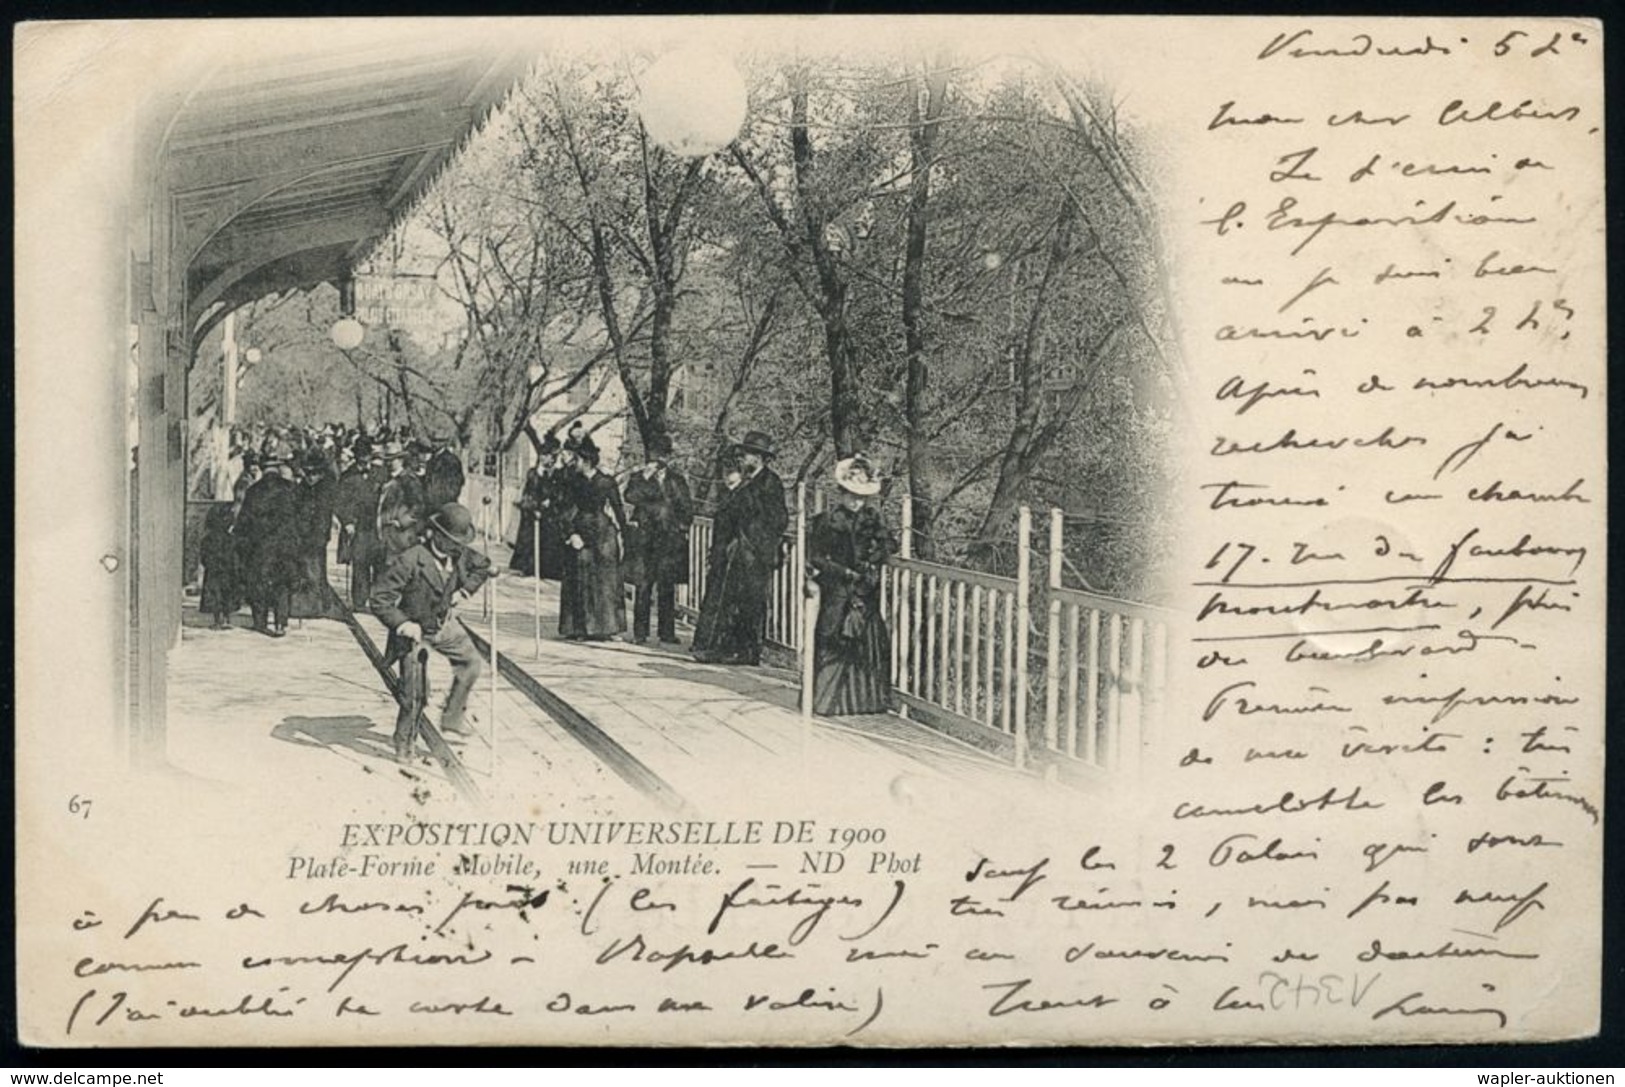 Vendredi 5 hes
Mon cher Albert,
Je t'écris de
l'Exposition
où je suis bien
arrivé à 2 hes,
Après de nombreuses
recherches j'ai
trouvé une chambre
17. rue du faubourg
Montmartre, près
du boulevard -
Première impression
de ma visite : très
camelotte les bâtiments
sauf les 2 Palais qui sont
très réussis, mais pas neufs
comme conception - Rappelle moi au souvenir du docteur
(J'ai oublié ta carte dans ma valise) Tout à toi
Louis
à peu de choses près (les fâitages)
67
EXPOSITION UNIVERSELLE DE 1900
Plate-Forme Mobile, une Montée. — ND Phot
delcampe.net
wapler-auktionen